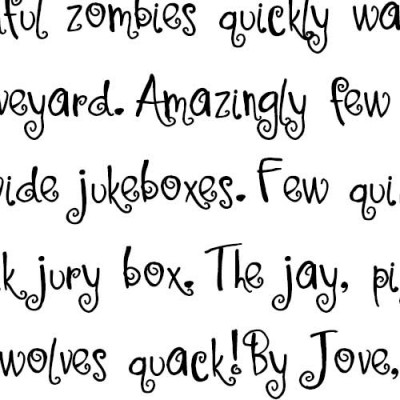 ful zombies quickly wa
veyard. Amazingly few
ide jukeboxes. Few qui
k jury box. The jay, pi
wolves quack!By Jove,